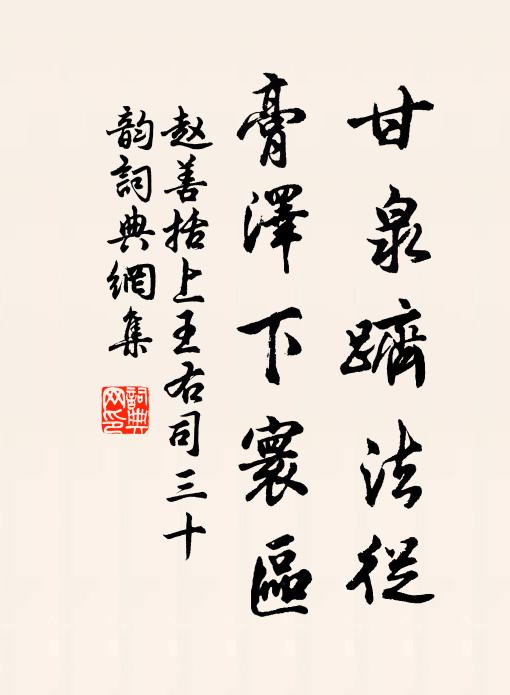 甘泉躋法從
膏澤下寰區
赵善括上王右司三十
韵詞典網集
詞典
网印